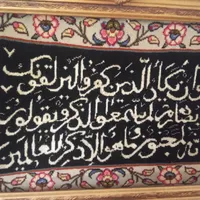 وان يكاد الذين كفروا ليزلقونك
بابصارهم لما سمعوا الذكر ويقولون
انه لمجنون وما هو الا ذكر للعالمين